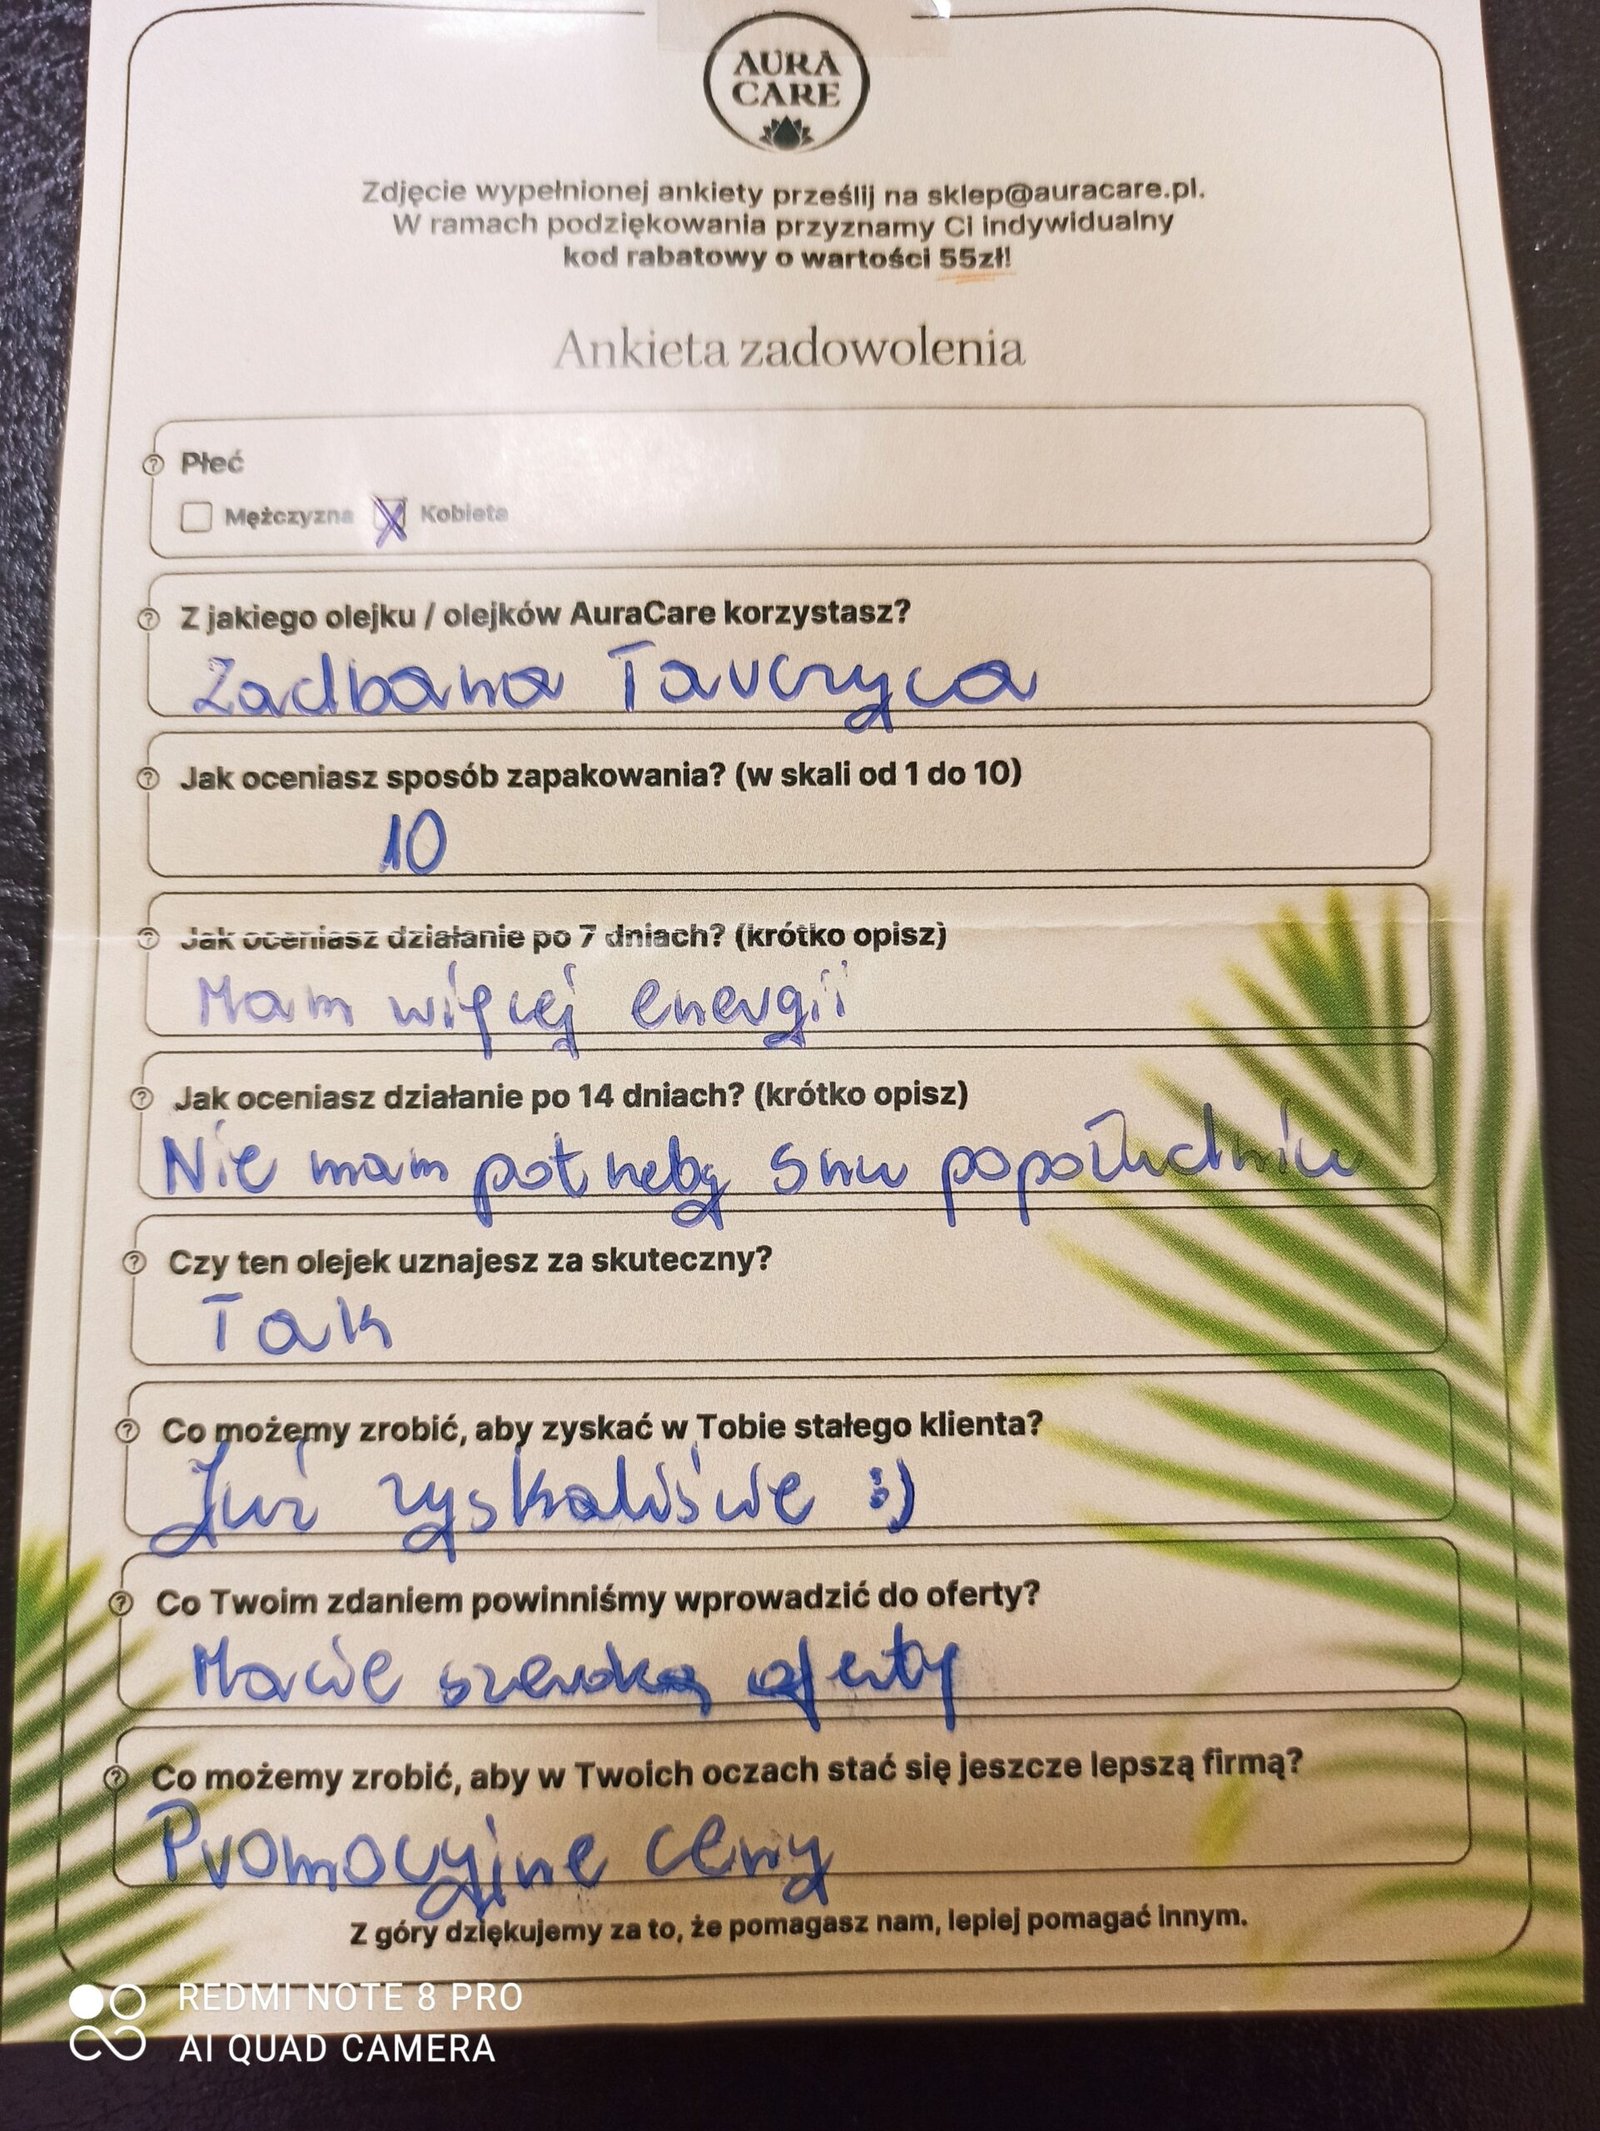 AURA
CARE
Zdjęcie wypełnionej ankiety prześlij na sklep@auracare.pl.
W ramach podziękowania przyznamy Ci indywidualny
kod rabatowy o wartości 55zł!
Ankieta zadowolenia
Płeć
Mężczyzna X Kobieta
Z jakiego olejku / olejków AuraCare korzystasz?
Zadbana Tarczyca
Jak oceniasz sposób zapakowania? (w skali od 1 do 10)
10
Jak oceniasz działanie po 7 dniach? (krótko opisz)
Mam więcej energii
Jak oceniasz działanie po 14 dniach? (krótko opisz)
Nie mam potrzeby snu popołudniu
Czy ten olejek uznajesz za skuteczny?
Tak
Co możemy zrobić, aby zyskać w Tobie stałego klienta?
Już zyskaliście :)
Co Twoim zdaniem powinniśmy wprowadzić do oferty?
Macie szeroką oferty
Co możemy zrobić, aby w Twoich oczach stać się jeszcze lepszą firmą?
Promocyjne ceny
Z góry dziękujemy za to, że pomagasz nam, lepiej pomagać innym.
REDMI NOTE 8 PRO
AI QUAD CAMERA